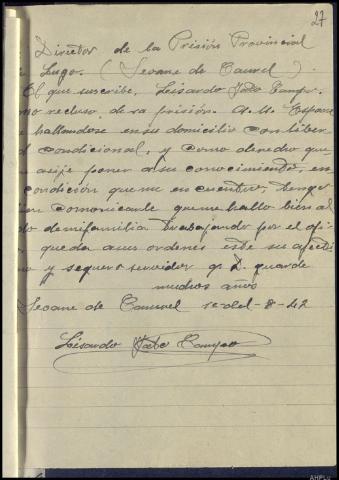 27
Director de la Prisión Provincial
Lugo. (Seoane de Caurel).
El que suscribe, Lisardo
recluso de sa prisión.
hallandose ensu domicilio con liber
condicional, y como derecho que
exije poner a su conocimiento, en
condición queme encuentro, tengo
comunicarle queme hallo bien al
do demifamilia trabajando por el ofi
queda asus ordenes este su afecti
y seguro servidor q. D. guarde
muchos años
Seoane de Caurel 8-42
Lisardo
AHPLu